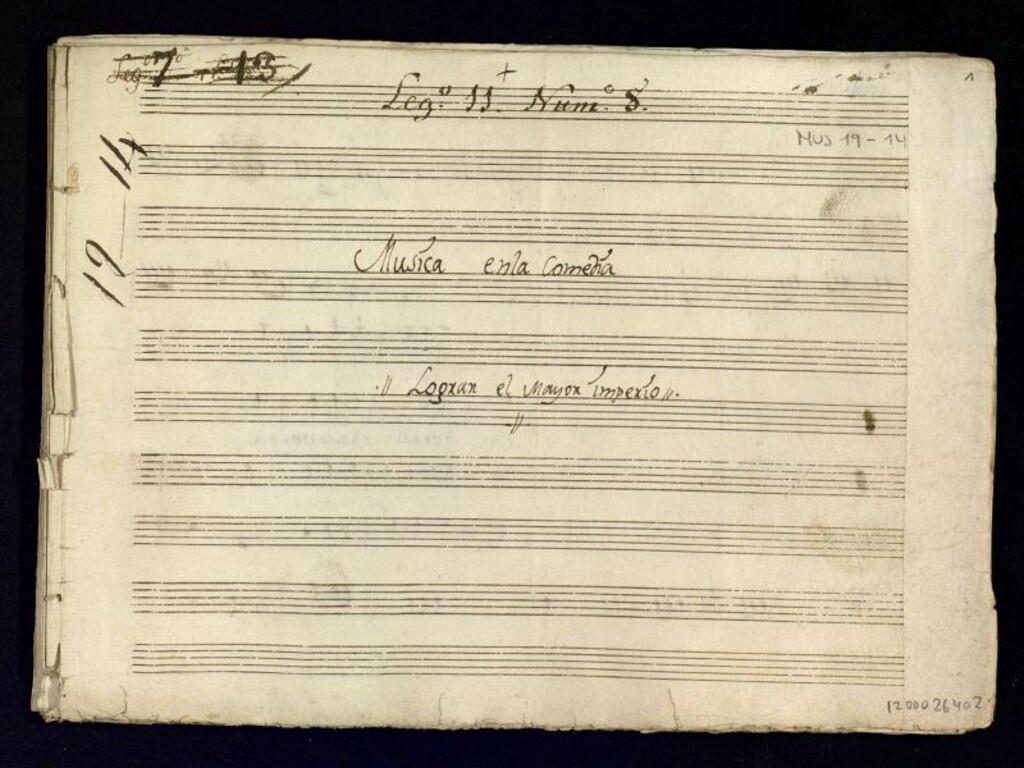 Leg.º 7 13
+
Leg.º 11. Num.º 8.
1
MUS 19-14
19 14
Musica enla Comedia
.// Lograr el Mayor imperio //.
//
1200026402